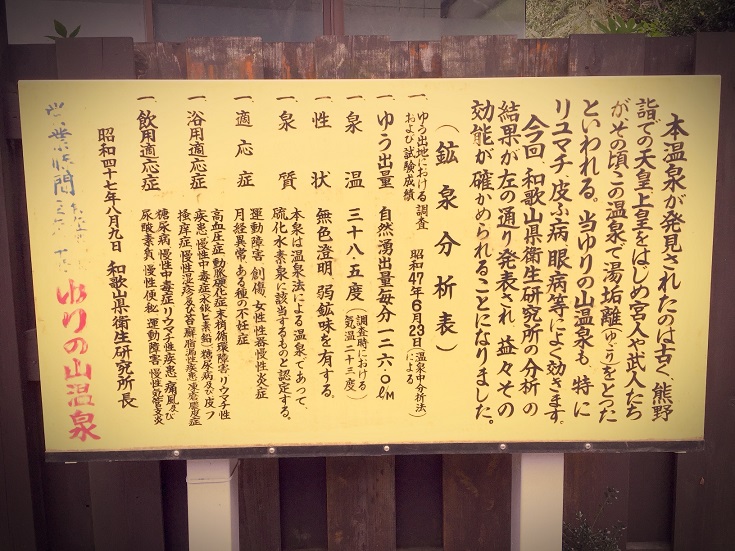 本温泉が発見されたのは古く、熊野
詣での天皇、上皇をはじめ宮人や武人たち
が、その頃この温泉で湯垢離(ゆごり)をとった
といわれる。当ゆりの山温泉も、特に
リユマチ、皮ふ病、眼病等によく効きます。
今回、和歌山県衛生研究所の分析の
結果が左の通り発表され、益々その
効能が確かめられることになりました。
(鉱泉分析表)
一、ゆう出地における調査
および試験成績
昭和47年6月23日(温泉中分析法)による
一、ゆう出量 自然湧出量毎分一二六・〇ℓM
一、泉温 三十八・五度(調査時における
気温二十三度)
一、性状 無色澄明、弱鉱味を有する。
一、泉質 本泉は温泉法による温泉であって、
硫化水素泉に該当するものと認定する。
一、適応症 運動障害、創傷、女性性器慢性炎症
月経異常、ある種の不妊症
一、浴用適応症 高血圧症、動脈硬化症、末梢循環障害、リウマチ性
疾患、慢性中毒症(水銀、ヒ素、鉛)糖尿病及び皮フ
掻痒症、慢性湿疹及び苔癬
一、飲用適応症 糖尿病、慢性中毒症、リウマチ性疾患、痛風及び
尿酸素質、慢性便秘、運動障害、慢性気管支炎
昭和四十七年八月九日 和歌山県衛生研究所長
営業時間
ゆりの山温泉